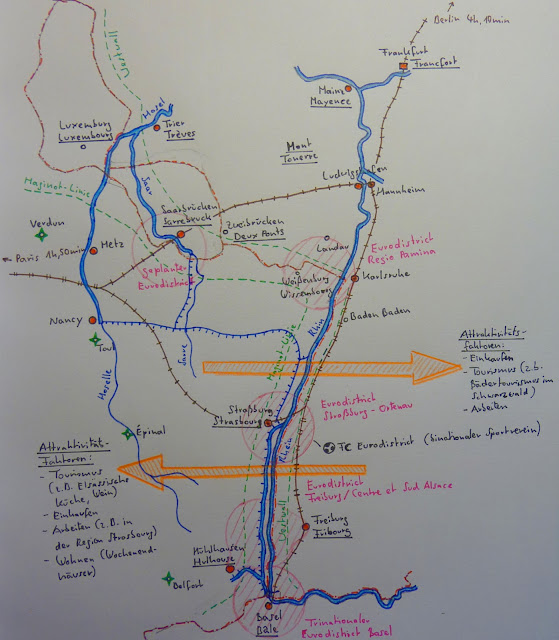 Berlin 4h, 10min
Frankfurt
Francfort
Westwall
Mosel
Mainz
Mayence
Luxemburg
Luxembourg
Trier
Trèves
Mont
Tonerre
Saar
Ludwigshafen
Mannheim
Maginot-Linie
Saarbrücken
Sarrebruck
Zweibrücken
Deux Ponts
Verdun
Metz
Landau
Eurodistrict
Regio Pamina
Paris 1h,50min
geplanter
Eurodistrict
Weißenburg
Wissembourg
Karlsruhe
Nancy
Toul
Rhin
Baden Baden
Sarre
Maginot-Linie
Attraktivitäts-
faktoren:
- Einkaufen
- Tourismus (z.b.
Bädertourismus im
Schwarzwald)
- Arbeiten
Moselle
Straßburg
Strasbourg
Eurodistrict
Straßburg - Ortenau
Épinal
Rhein
FC Eurodistrict (binationaler Sportverein)
Attraktivitäts-
faktoren:
- Tourismus
(z.B. Elsässische
Küche, Wein)
- Einkaufen
- Arbeiten (z.B. in
der Region Strasbourg)
- Wohnen (Wochenend-
häuser)
Eurodistrict
Freiburg/Centre et Sud Alsace
Westwall
Freiburg
Fribourg
Mühlhausen
Mulhouse
Belfort
Basel
Bâle
Trinationaler
Eurodistrict Basel